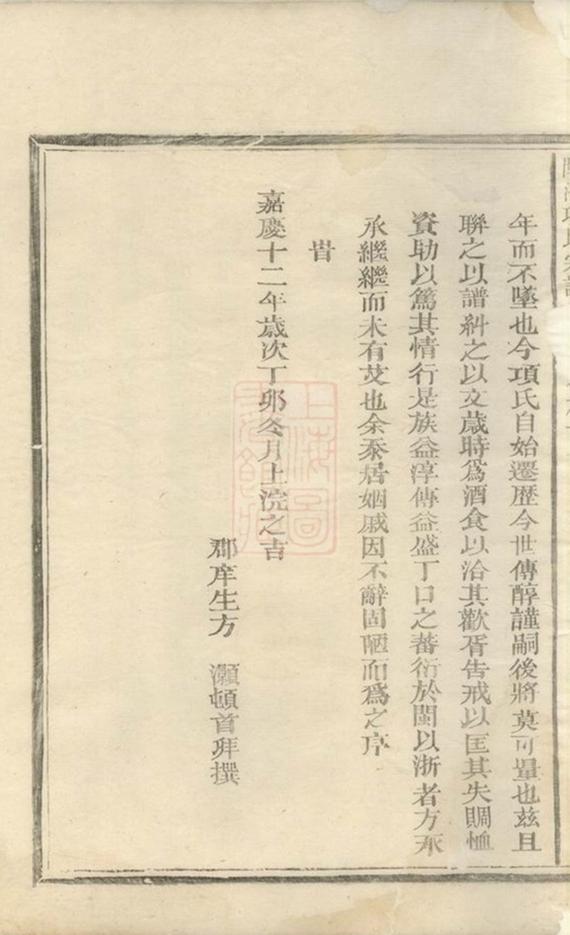 年而不墜也今項氏自始遷歷今世傳醇謹嗣後將莫可量也玆且
聯之以譜糾之以文歲時爲酒食以洽其歡胥告戒以匡其失賙恤
資助以篤其情行是族益淳傳益盛丁口之蕃衍於閩以浙者方承
承繼繼而未有艾也余忝居姻戚因不辭固陋而爲之序
旹
嘉慶十二年歲次丁卯冬月上浣之吉
郡庠生方 灝頓首拜撰
上海圖